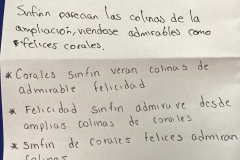 Sinfín parecían las colinas de la
ampliación, viéndose admirables como
felices corales.
* Corales sinfín verán colinas de
admirable felicidad
* Felicidad sinfín admira ve desde
amplias colinas de corales
* Sinfín de corales felices admiran
colinas